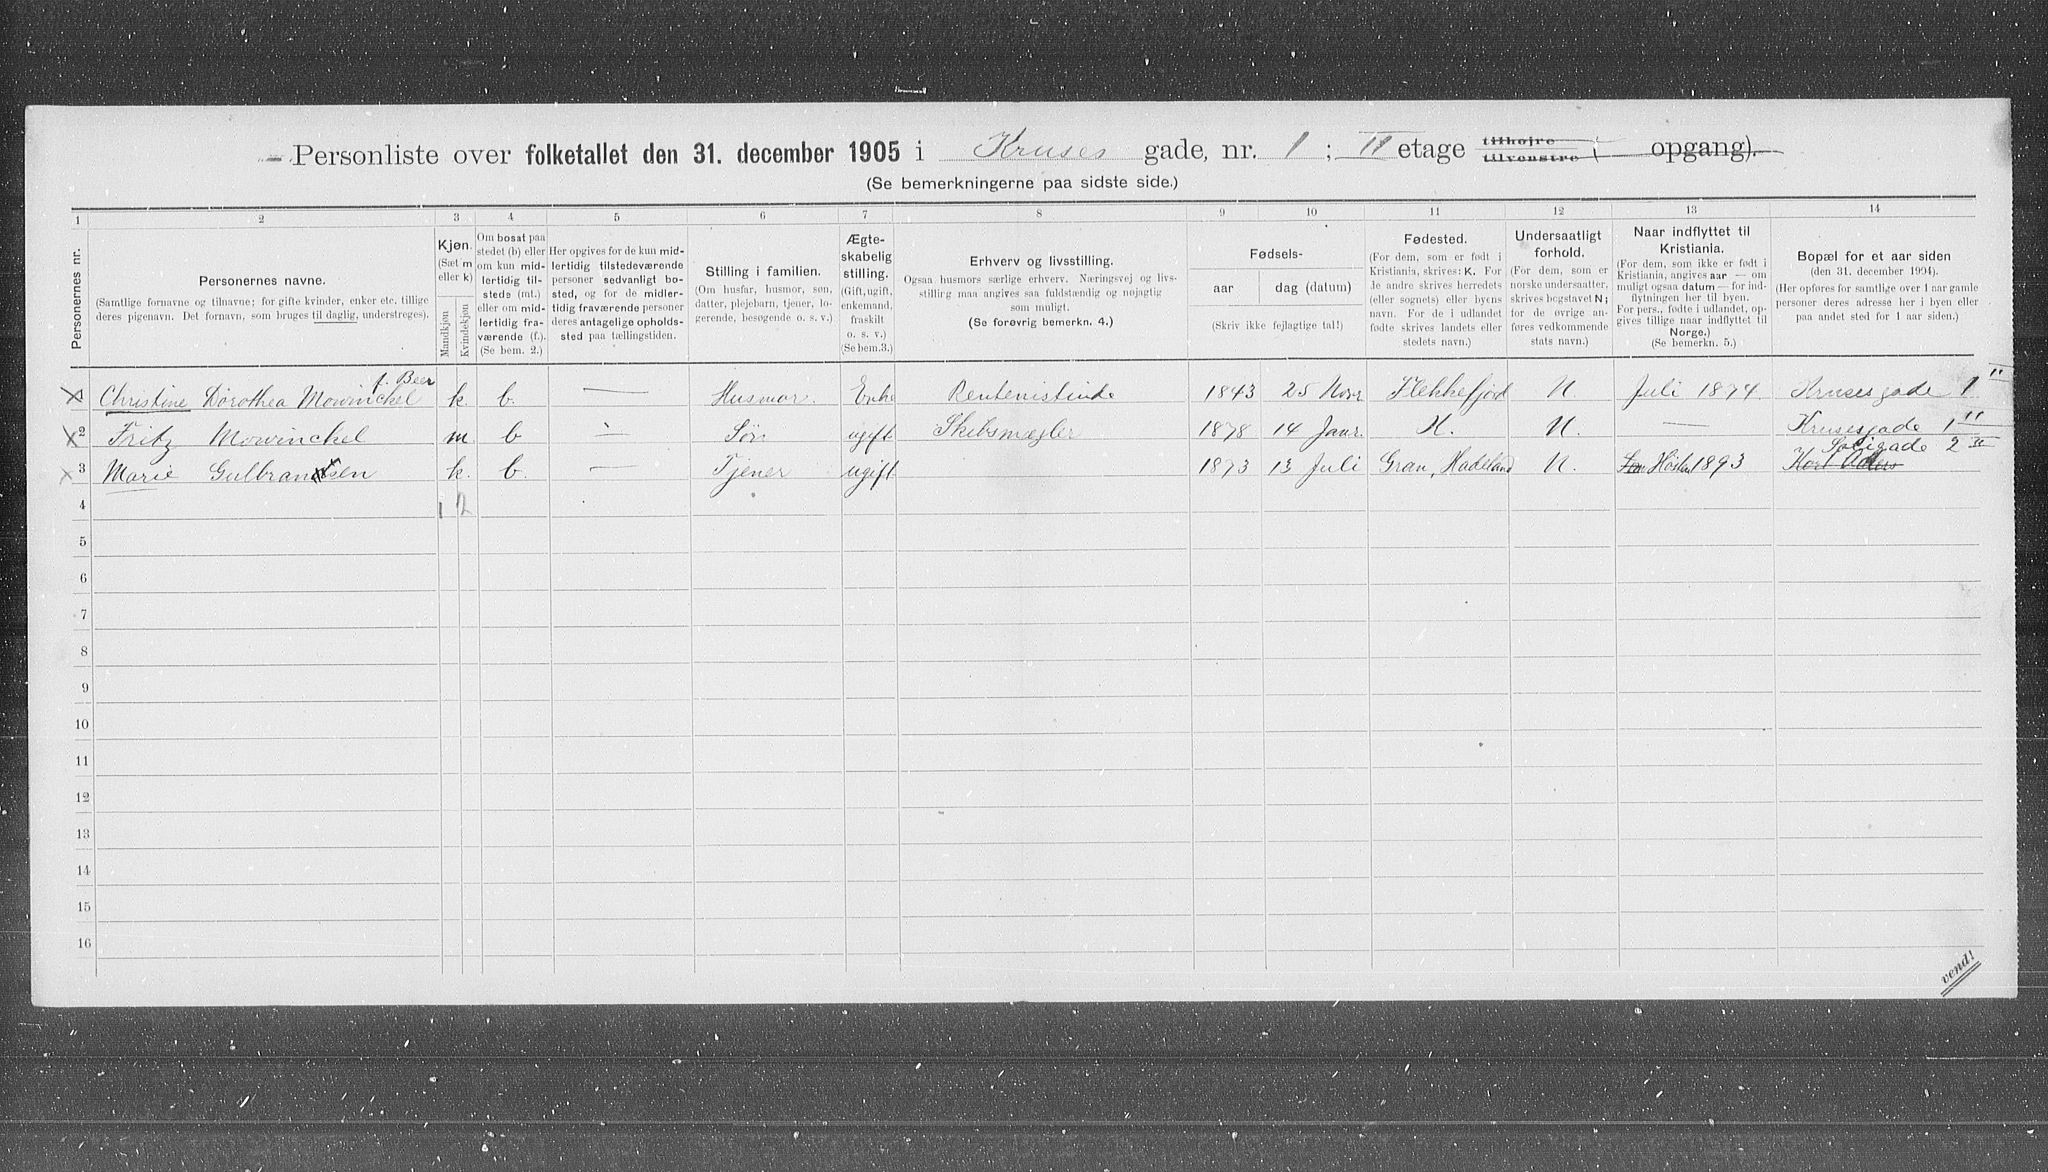 Personliste over folketallet den 31. december 1905 i Kruses gade, nr. 1; II etage tilhøire tilvenstre opgang).
(Se bemerkningerne paa sidste side.)
1 2 3 4 5 6 7 8 9 10 11 12 13 14
Personernes nr.
Personernes navne.
(Samtlige fornavne og tilnavne; for gifte kvinder, enker etc. tillige deres pigenavn. Det fornavn, som bruges til daglig, understreges).
Kjøn.
(Sæt m eller k)
Mandkjøn
Kvindekjøn
Om bosat paa stedet (b) eller om kun midlertidig tilstede (mt.) eller om midlertidig fraværende (f.). (Se bem. 2.)
Her opgives for de kun midlertidig tilstedeværende personer sedvanligt bosted, og for de midlertidig fraværende personer deres antagelige opholdssted paa tællingstiden.
Stilling i familien.
(Om husfar, husmor, søn, datter, plejebarn, tjener, logerende, besøgende o. s. v.)
Ægteskabelig stilling.
(Gift, ugift, enkemand, fraskilt o. s. v.)
(Se bem.3.)
Erhverv og livsstilling.
Ogsaa husmors særlige erhverv. Næringsvej og livsstilling maa angives saa fuldstændig og nøjagtig som muligt.
(Se forøvrig bemerkn. 4.)
Fødsels-
aar
dag (datum)
(Skriv ikke fejlagtige tal!)
Fødested.
(For dem, som er født i Kristiania, skrives: K. For de andre skrives herredets (eller sognets) eller byens navn. For de i udlandet fødte skrives landets eller stedets navn.)
Undersaatligt forhold.
(For dem, som er norske undersaatter, skrives bogstavet N; for de øvrige anføres vedkommende stats navn.)
Naar indflyttet til Kristiania.
(For dem, som ikke er født i Kristiania, angives aar — om muligt ogsaa datum — for indflytningen her til byen. For pers., fødte i udlandet, opgives tillige naar indflyttet til Norge.)
(Se bemerkn. 5.)
Bopæl for et aar siden
(den 31. december 1904).
(Her opføres for samtlige over 1 aar gamle personer deres adresse her i byen eller paa andet sted for 1 aar siden.)
f. Beer
1 Christine Dorothea Mowinckel k. b. — Husmor. Enke Rentenistinde 1843 25 Novr Flekkefjord N. Juli 1874 Krusesgade 1 II
2 Fritz Mowinckel m. b — Søn ugift Skibsmægler 1878 14 Janr. K. N. — Krusesgade 1 II
3 Marie Gulbrandsen k. b. — Tjener ugift 1873 13 Juli Gran, Hadeland N. Høsten 1893 Kort Adlers Sofigade 2 II
4 1 2
5
6
7
8
9
10
11
12
13
14
15
16
vend!